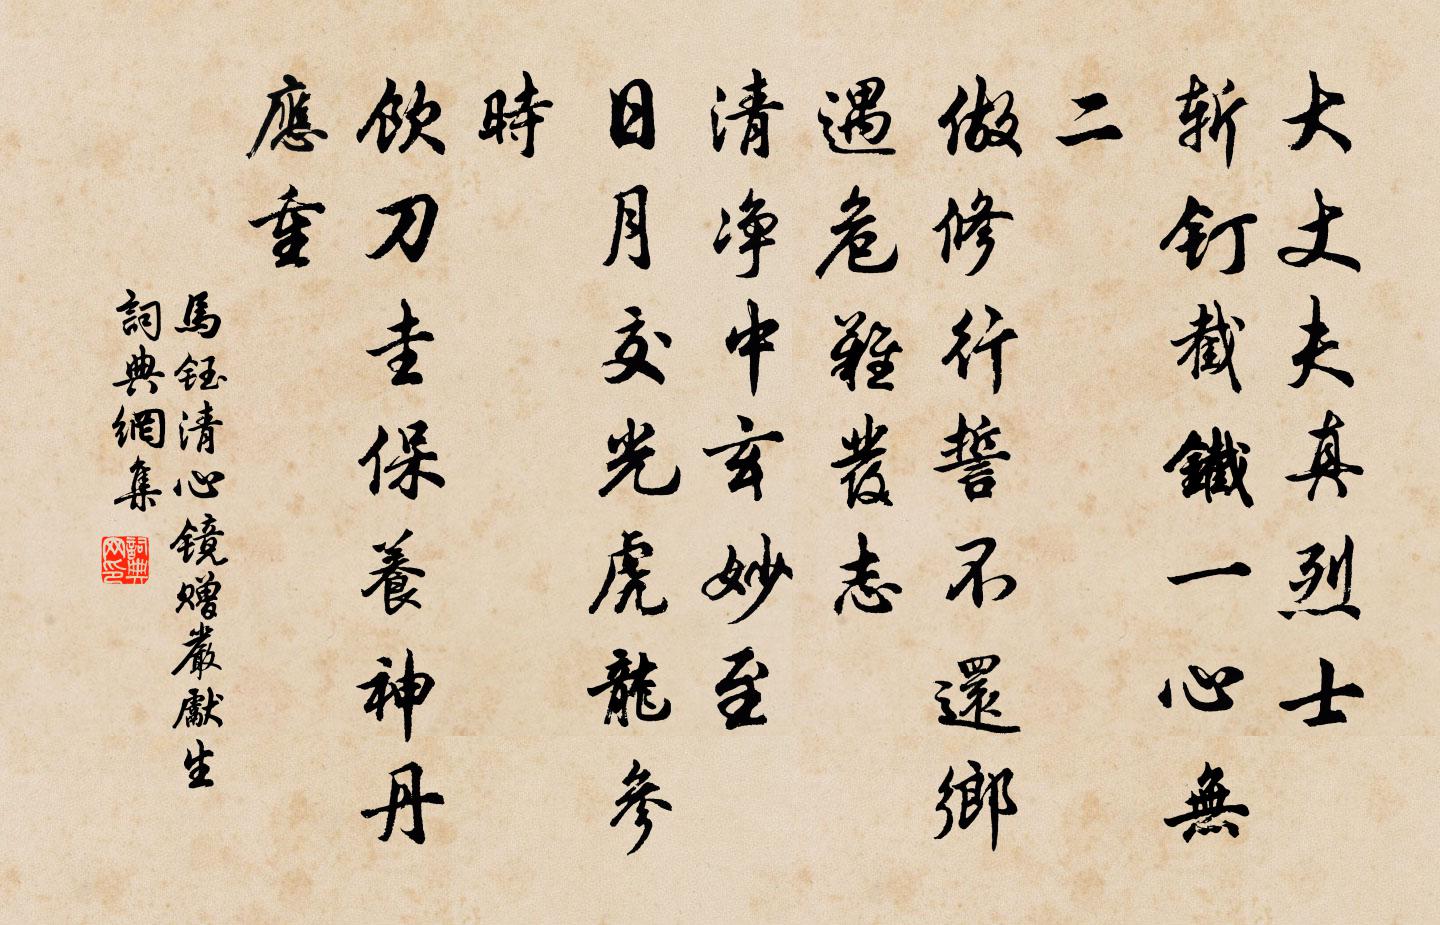 大丈夫真烈士
斩釘截鐵一心無
二
做修行誓不還鄉
遇危難發志
清净中玄妙至
日月交光虎龍參
時
飲刀圭保養神丹
應重
馬鈺清心镜赠嚴獻生
詞典網集
詞典网印